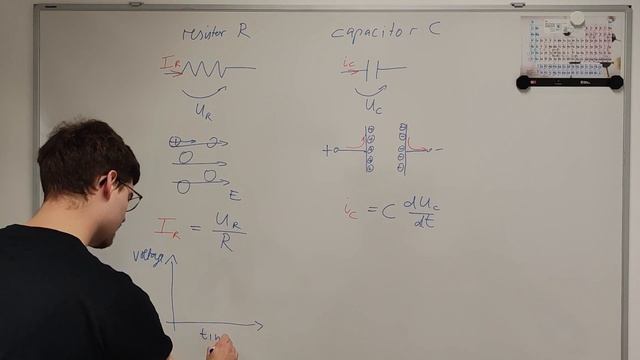 resistor R
capacitor C
I_R
i_C
U_R
U_C
E
I_R = U_R / R
i_C = C dU_C / dt
voltage
tim